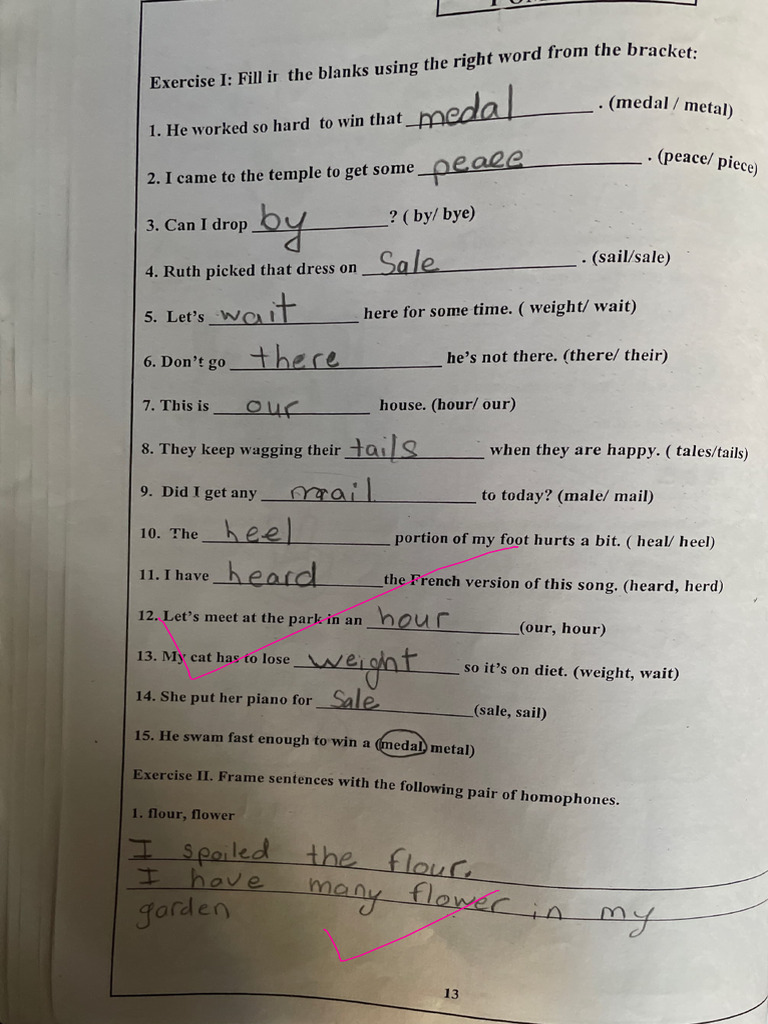 Exercise I: Fill in the blanks using the right word from the bracket:
1. He worked so hard to win that medal . (medal / metal)
2. I came to the temple to get some peace . (peace/ piece)
3. Can I drop by ? ( by/ bye)
4. Ruth picked that dress on Sale . (sail/sale)
5. Let's wait here for some time. ( weight/ wait)
6. Don't go there he's not there. (there/ their)
7. This is our house. (hour/ our)
8. They keep wagging their tails when they are happy. ( tales/tails)
9. Did I get any mail to today? (male/ mail)
10. The heel portion of my foot hurts a bit. ( heal/ heel)
11. I have heard the French version of this song. (heard, herd)
12. Let's meet at the park in an hour (our, hour)
13. My cat has to lose weight so it's on diet. (weight, wait)
14. She put her piano for Sale (sale, sail)
15. He swam fast enough to win a (medal, metal)
Exercise II. Frame sentences with the following pair of homophones.
1. flour, flower
I spoiled the flour.
I have many flower in my
garden
13